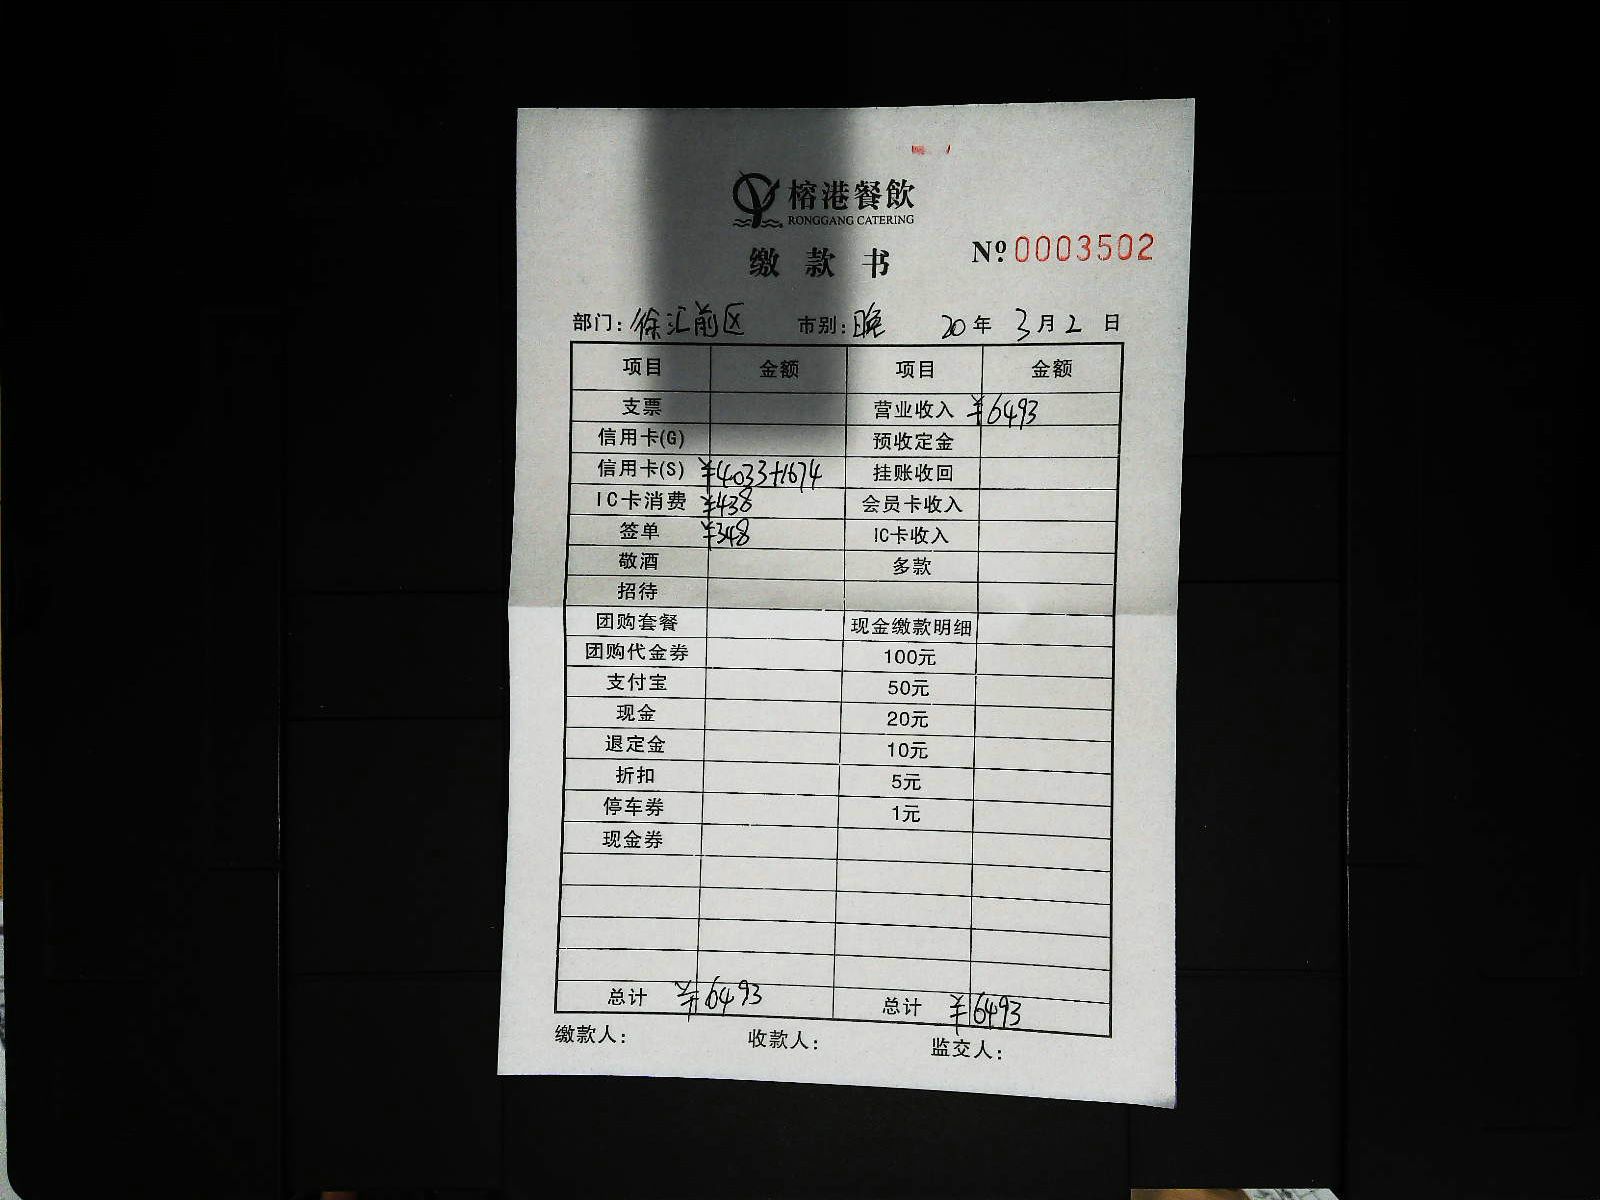 榕港餐飲
RONGGANG CATERING
缴款书 Nº 0003502
部门: 徐汇前区 市别: 晚 20年 3月 2日
项目 金额 项目 金额
支票 营业收入 ¥6493
信用卡(G) 预收定金
信用卡(S) ¥4033+1674 挂账收回
IC卡消费 ¥438 会员卡收入
签单 ¥348 IC卡收入
敬酒 多款
招待
团购套餐 现金缴款明细
团购代金券 100元
支付宝 50元
现金 20元
退定金 10元
折扣 5元
停车券 1元
现金券
总计 ¥6493 总计 ¥6493
缴款人: 收款人: 监交人: